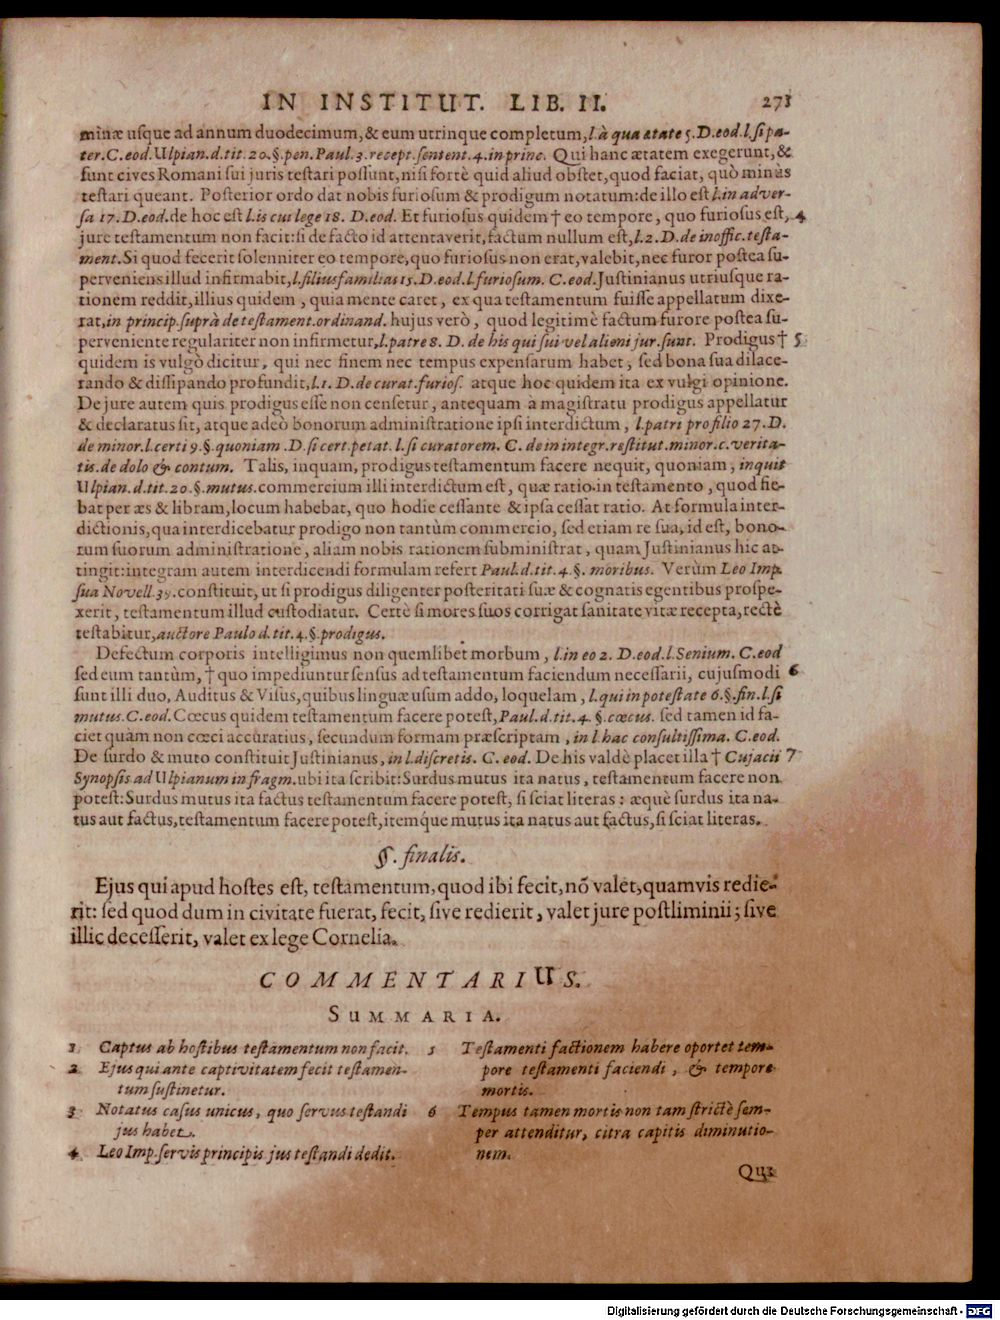 IN INSTITUT. LIB. II. 271
minæ usque ad annum duodecimum, & eum utrinque completum, l. à qua ætate 5. D. eod. l. si pa-
ter. C. eod. Ulpian. d. tit. 20. §. pen. Paul. 3. recept. sentent. 4. in princ. Qui hanc ætatem exegerunt, &
sunt cives Romani sui juris testari possunt, nisi fortè quid aliud obstet, quod faciat, quò minùs
testari queant. Posterior ordo dat nobis furiosum & prodigum notatum: de illo est l. in adver-
sa 17. D. eod. de hoc est l. is cui lege 18. D. eod. Et furiosus quidem † eo tempore, quo furiosus est, 4
jure testamentum non facit: si de facto id attentaverit, factum nullum est, l. 2. D. de inoffic. testa-
ment. Si quod fecerit solenniter eo tempore, quo furiosus non erat, valebit, nec furor postea su-
perveniens illud infirmabit, l. filiusfamilias 15. D. eod. l. furiosum. C. eod. Justinianus utriusque ra-
tionem reddit, illius quidem, quia mente caret, ex qua testamentum fuisse appellatum dixe-
rat, in princip. suprà de testament. ordinand. hujus verò, quod legitimè factum furore postea su-
perveniente regulariter non infirmetur, l. patre 8. D. de his qui sui vel alieni jur. sunt. Prodigus † 5
quidem is vulgò dicitur, qui nec finem nec tempus expensarum habet, sed bona sua dilace-
rando & dissipando profundit, l. 1. D. de curat. furios. atque hoc quidem ita ex vulgi opinione.
De jure autem quis prodigus esse non censetur, antequam à magistratu prodigus appellatur
& declaratus sit, atque adeò bonorum administratione ipsi interdictum, l. patri pro filio 27. D.
de minor. l. certi 9. §. quoniam. D. si cert. petat. l. si curatorem. C. de in integr. restitut. minor. c. verita-
tis. de dolo & contum. Talis, inquam, prodigus testamentum facere nequit, quoniam, inquit
Ulpian. d. tit. 20. §. mutus. commercium illi interdictum est, quæ ratio in testamento, quod fie-
bat per æs & libram, locum habebat, quo hodie cessante & ipsa cessat ratio. At formula inter-
dictionis, qua interdicebatur prodigo non tantùm commercio, sed etiam re sua, id est, bono-
rum suorum administratione, aliam nobis rationem subministrat, quam Justinianus hic at-
tingit: integram autem interdicendi formulam refert Paul. d. tit. 4. §. moribus. Verùm Leo Imp.
sua Novell. 39. constituit, ut si prodigus diligenter posteritati suæ & cognatis egentibus prospe-
xerit, testamentum illud custodiatur. Certè si mores suos corrigat sanitate vitæ recepta, rectè
testabitur, auctore Paulo d. tit. 4. §. prodigus.
Defectum corporis intelligimus non quemlibet morbum, l. in eo 2. D. eod. l. Senium. C. eod
sed eum tantùm, † quo impediuntur sensus ad testamentum faciendum necessarii, cujusmodi 6
sunt illi duo, Auditus & Visus, quibus linguæ usum addo, loquelam, l. qui in potestate 6. §. fin. l. si
mutus. C. eod. Cœcus quidem testamentum facere potest, Paul. d. tit. 4. §. cœcus. sed tamen id fa-
ciet quàm non cœci accùratius, secundum formam præscriptam, in l. hac consultissima. C. eod.
De surdo & muto constituit Justinianus, in l. discretis. C. eod. De his valdè placet illa † Cujacii 7
Synopsis ad Ulpianum in fragm. ubi ita scribit: Surdus mutus ita natus, testamentum facere non
potest: Surdus mutus ita factus testamentum facere potest, si sciat literas: æquè surdus ita na-
tus aut factus, testamentum facere potest, itemque mutus ita natus aut factus, si sciat literas.
§. finalis.
Ejus qui apud hostes est, testamentum, quod ibi fecit, nõ valet, quamvis redie-
rit: sed quod dum in civitate fuerat, fecit, sive redierit, valet jure postliminii; sive
illic decesserit, valet ex lege Cornelia.
COMMENTARIUS.
SUMMARIA.
1 Captus ab hostibus testamentum non facit.
2 Ejus qui ante captivitatem fecit testamen-
tum sustinetur.
3 Notatus casus unicus, quo servus testandi
jus habet.
4 Leo Imp. servis principis jus testandi dedit.
5 Testamenti factionem habere oportet tem-
pore testamenti faciendi, & tempore
mortis.
6 Tempus tamen mortis non tam strictè sem-
per attenditur, citra capitis diminutio-
nem.
Digitalisierung gefördert durch die Deutsche Forschungsgemeinschaft - DFG